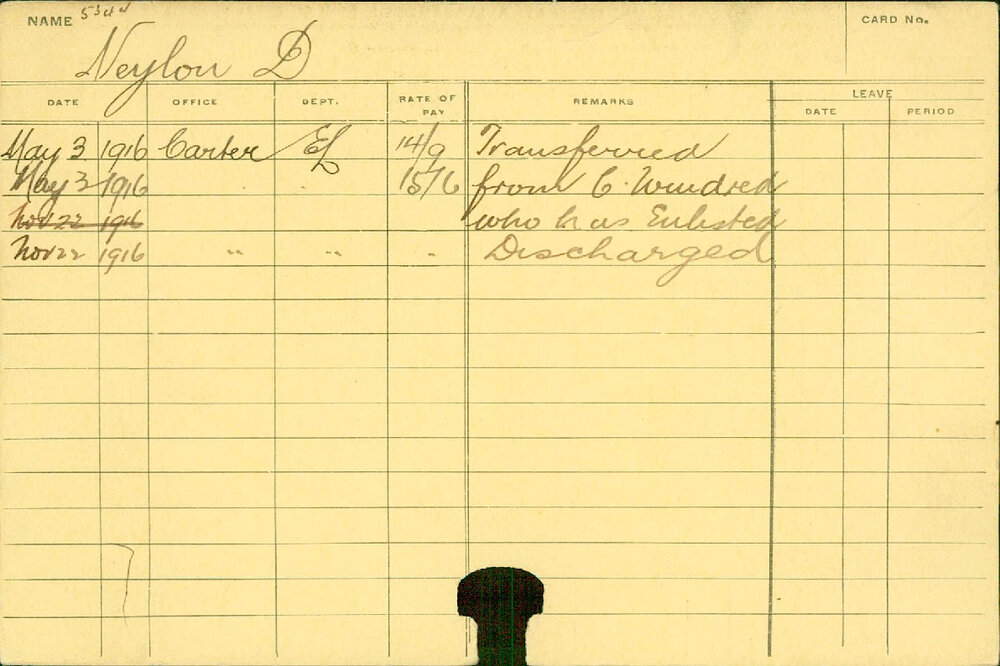 NAME 5344 CARD No.
Neylon D
DATE OFFICE DEPT. RATE OF PAY REMARKS LEAVE
DATE PERIOD
May 3 1916 Carter EL 14/9 Transferred
May 3 1916 " " 15/6 from C. Windred
Nov 22 1916 who has Enlisted
Nov 22 1916 " " " Discharged